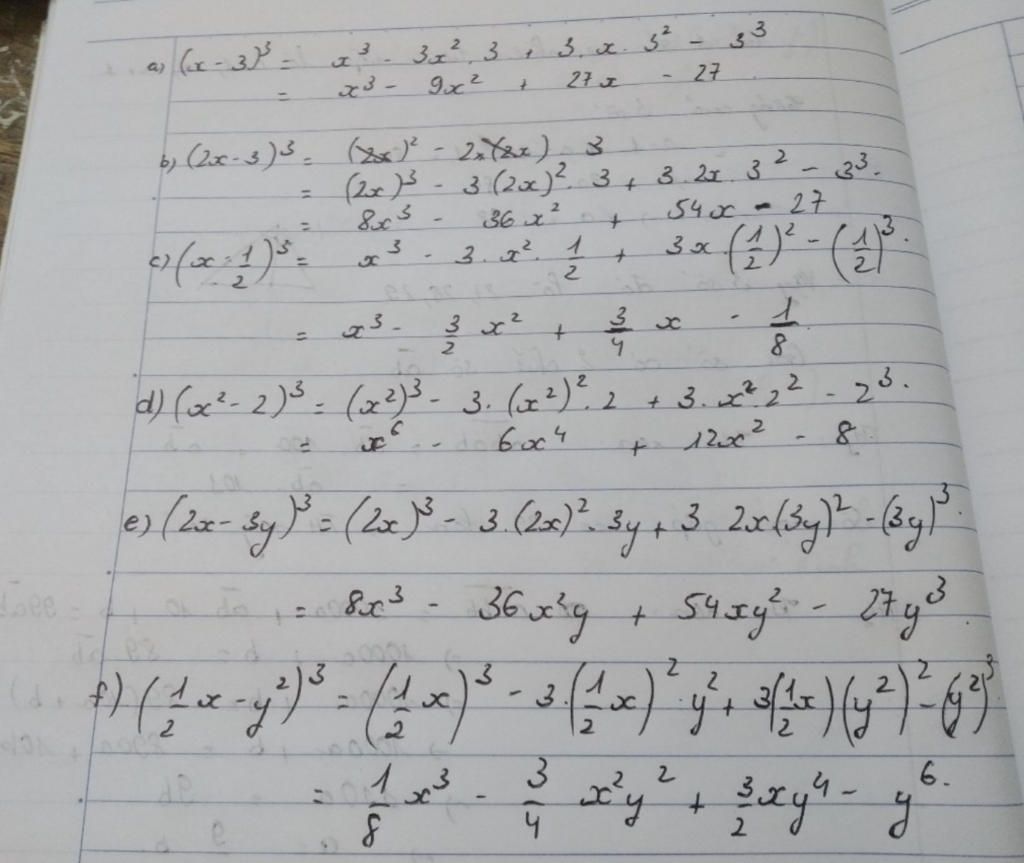 a) (x - 3)³ = x³ - 3x². 3 + 3. x. 3² - 3³
= x³ - 9x² + 27x - 27
b) (2x - 3)³ = (2x)² - 2.(2x) 3
= (2x)³ - 3(2x)². 3 + 3. 2x. 3² - 3³.
= 8x³ - 36x² + 54x - 27
c) (x - 1/2)³ = x³ - 3. x². 1/2 + 3x.(1/2)² - (1/2)³.
= x³ - 3/2 x² + 3/4 x - 1/8
d) (x² - 2)³ = (x²)³ - 3. (x²)². 2 + 3. x². 2² - 2³.
= x⁶ - 6x⁴ + 12x² - 8
e) (2x - 3y)³ = (2x)³ - 3.(2x)². 3y + 3 2x.(3y)² - (3y)³.
= 8x³ - 36x²y + 54xy² - 27y³
f) (1/2 x - y²)³ = (1/2 x)³ - 3.(1/2 x)². y² + 3(1/2 x)(y²)² - (y²)³
= 1/8 x³ - 3/4 x²y² + 3/2 xy⁴ - y⁶.